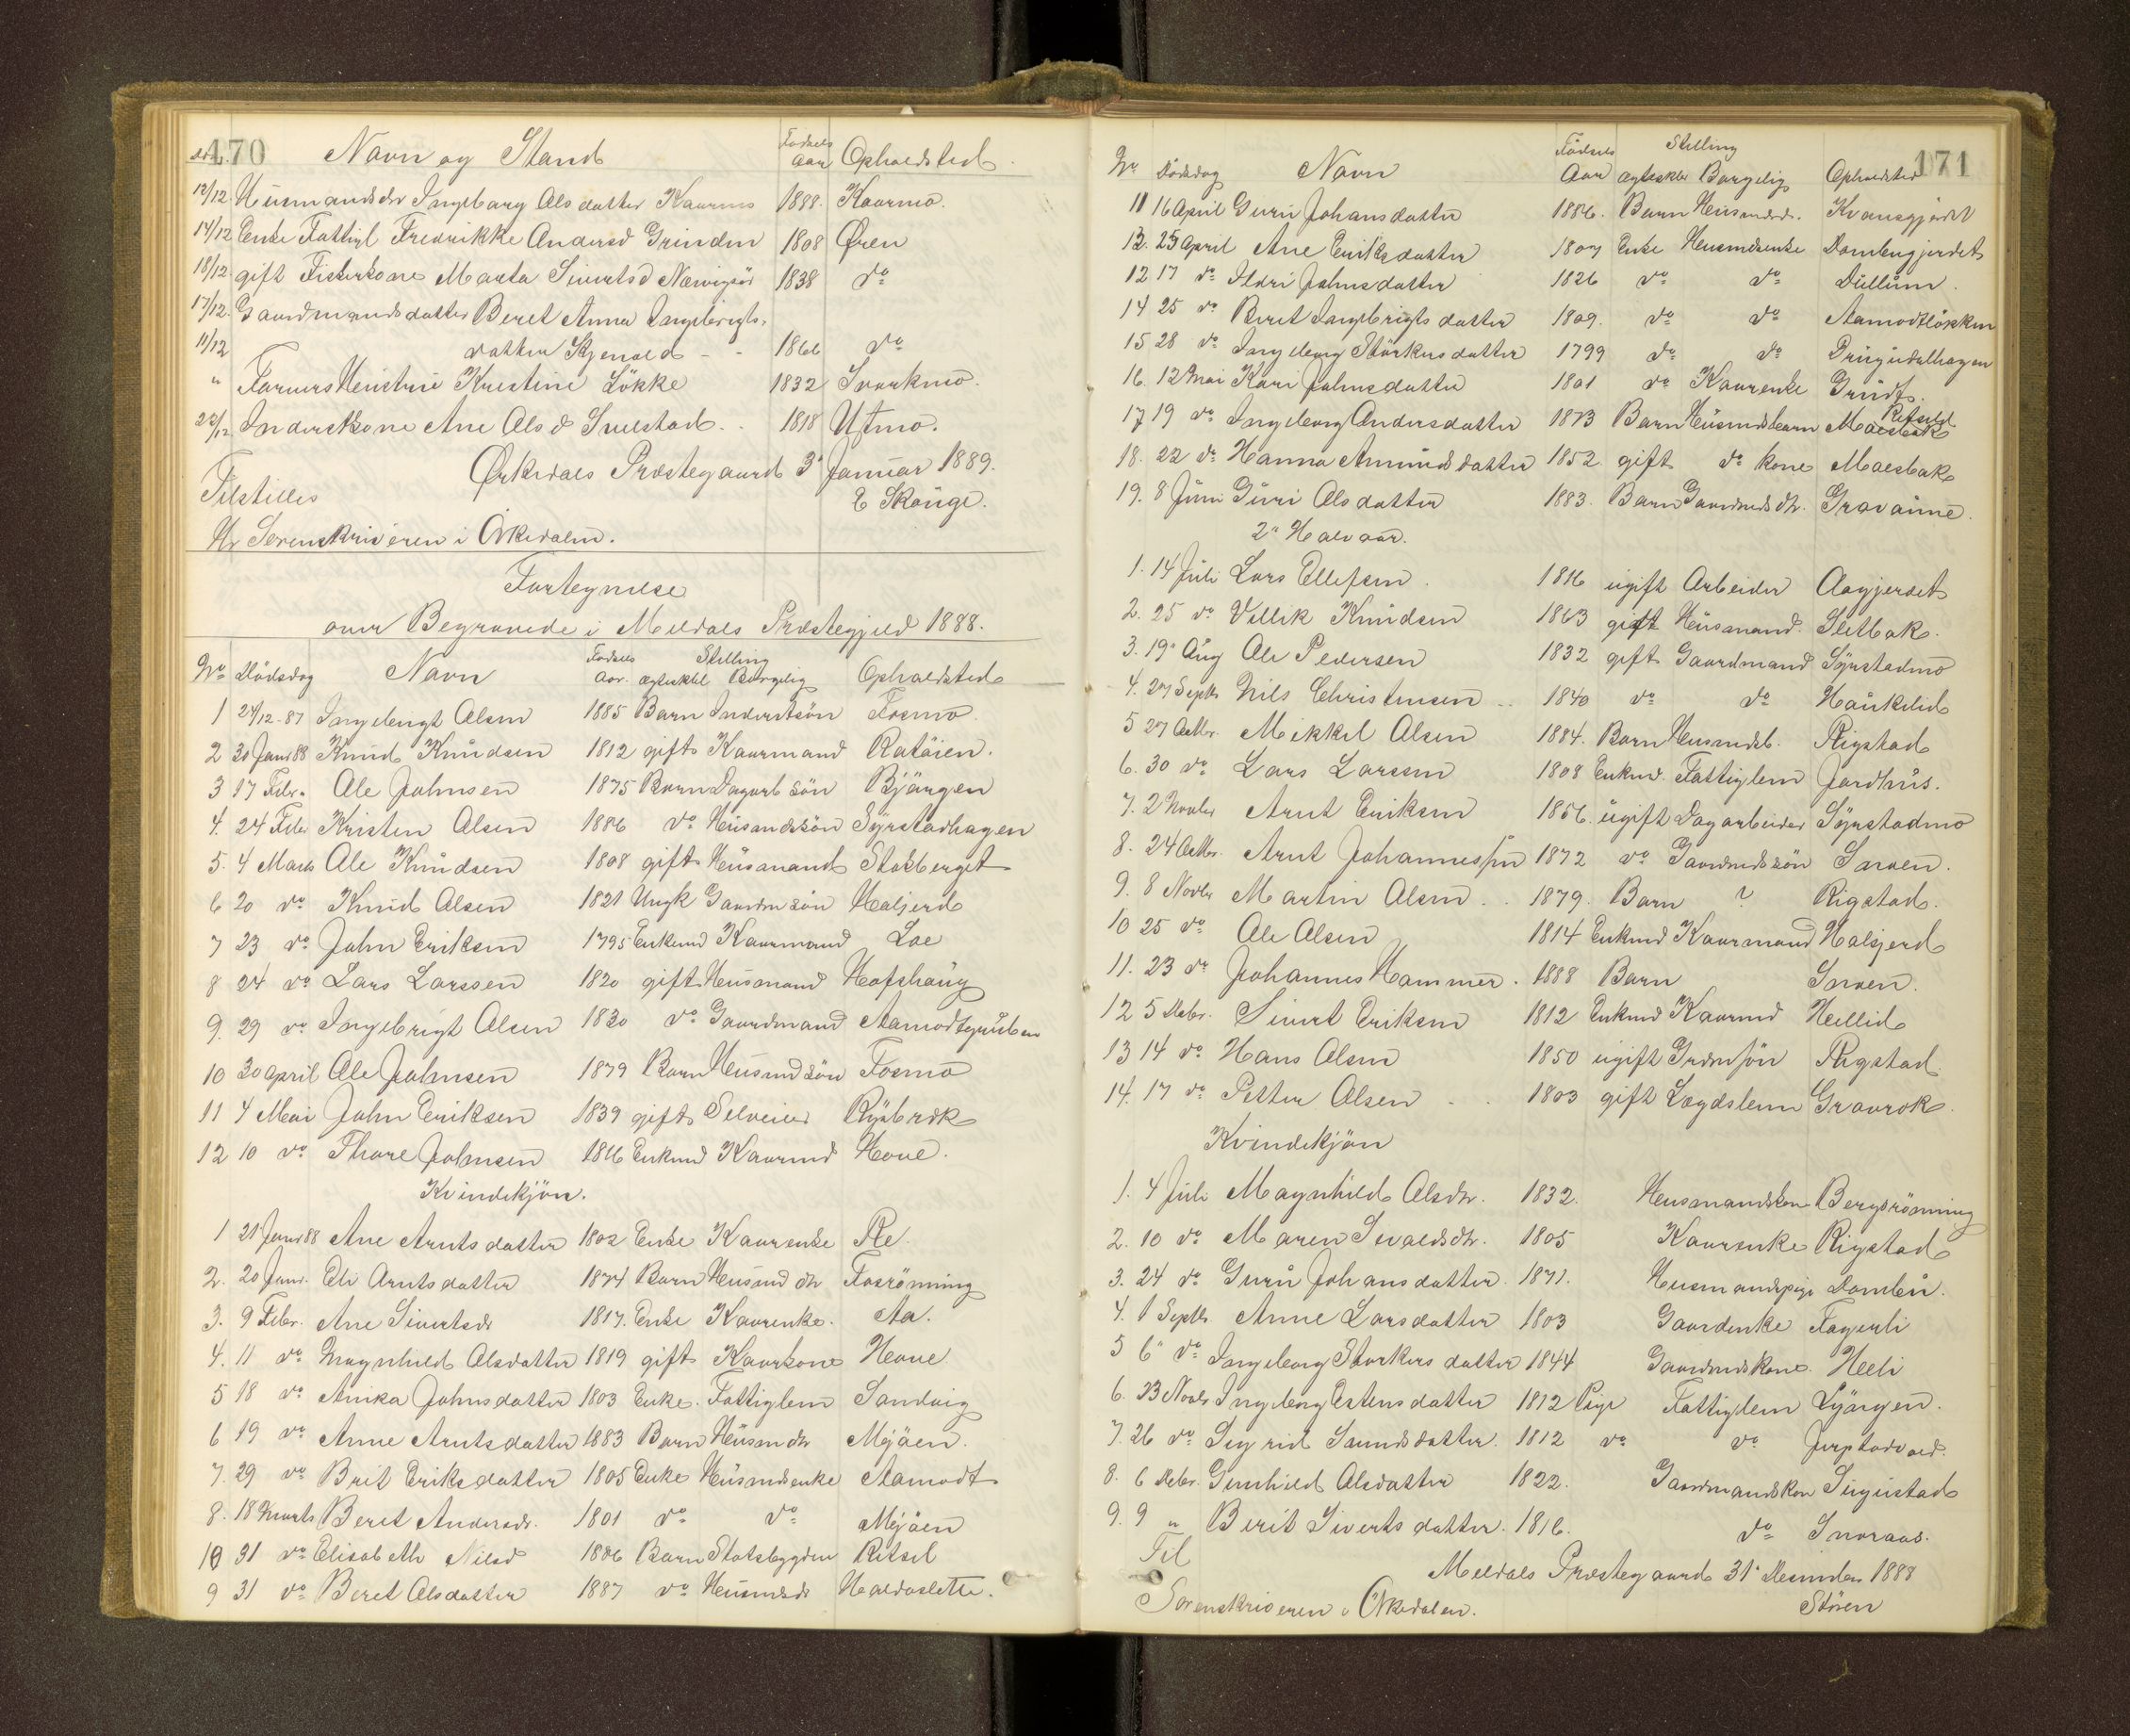 170 Navn og Stand Fødsels Aar Opholdsted
12/12 Husmandsdr Ingeborg Olsdatter Kaarmo 1888. Kaarmo.
14/12 Enke Fattigl Fredrikke Andersd Grinden 1808 Øren
18/12 gift Fiskerkone Marta Sivertsd Nærvigsør 1838 do
17/12. Gaardmandsdatter Beret Anna Ingebrigts-
11/12 datter Skjenald - - 1866 do
" Farvers Heustrue Kristine Løkke 1832 Svorkmo.
22/12 Inderstkone Ane Olsd Svelstad . . 1818 Utmo.
Ørkedals Præstegaard 3' Januar 1889.
Tilstilles E Skauge.
Hr Sorenskriveren i Orkedalen.
Fortegnelse
over Begravede i Meldals Præstegjeld 1888.
No Dödsdag Navn Fødsels Aar. Stilling ægteskbl Borgelig Opholdsted
1 24/12-87 Ingebrigt Olsen 1885 Barn Inderstsön Fosmo.
2 30 Janr 88 Knud Knudsen 1812 gift Kaarmand Ratöien.
3 17 Febr. Ole Johnsen 1875 Barn Dagarb sön Bjørgen
4. 24 Febr Kristen Olsen 1886 do Husmandssön Syrstadhagen
5. 4 Marts Ole Knudsen 1808 gift Husmand Stokberget
6 20 do Knud Olsen 1821 Ungk Gaardm sön Halsjerd
7 23 do John Eriksen 1795 Enkemd Kaarmand Loe
8 24 do Lars Larssen 1820 gift Husmand Hofshaug
9. 29 do Ingebrigt Olsen 1830 do Gaardmand Aamodtgruben
10 30 April Ole Johnsen 1879 Barn Husmd sön Fosmo
11 4 Mai John Eriksen 1839 gift Selveier Ryabrek
12 10 do Thore Johnsen 1816 Enkemd Kaarmd Hove.
Kvindekjön.
1 21 Janr 88 Ane Arntsdatter 1802 Enke Kaarenke Re.
2. 20 Janr. Eli Arntsdatter 1874 Barn Husmd dtr Fosrönning
3. 9 Febr. Ane Sivertsdr 1817. Enke Kaarenke. Aa.
4. 11 do Magnhild Olsdatter 1819 gift Kaarkone Hove
5 18 do Anika Johnsdatter 1803 Enke. Fattiglem Sandvig
6 19 do Anne Arntsdatter 1883 Barn Husm dtr Mjöen.
7. 29 do Brit Eriksdatter 1805 Enke Husmdsenke Aamodt
8. 18 Marts Beret Andersdr. 1801 do do Mjöen
10 31 do Elisabeth Nilsd 1886 Barn Statsbygden Ritsel
9 31 do Beret Olsdatter 1887 do Husmdsdr Haldoslette.
171
No Dödsdag Navn Födsels Aar Stilling ægteskbl Borgelig Opholdsted
11 16 April Guru Johansdatter 1886. Barn Husmdsd. Kvamsgjerdet
13. 25 April Ane Eriksdatter 1807 Enke Husmdsenke Domlengjerdet
12 17 do Ildri Johnsdatter 1826 do do Dullum.
14 25 do Beret Ingebrigtsdatter 1809. do do Aamodtløkken
15 28 do Ingeborg Störkersdatter 1799 do do Drugudalhagen
16. 12 Mai Kari Johnsdatter 1801 do Kaarenke Grudt.
17 19 do Ingeborg Andersdatter 1873 Barn Husmdsbarn Moesbak Ritseld
18. 22 do Hanna Amundsdatter 1852 gift do kone Moesbak
19. 8 Juni Guri Olsdatter 1883. Barn Gaardmds dtr. Gravaune.
2" Halvaar.
1. 14 Juli Lars Ellefsen. 1816 ugift Arbeider Aagjerdet
2. 25 do Vellik Knudsen 1863 gift Husmand. Sletbak.
3. 19' Aug Ole Pedersen 1832 gift Gaardmand Syrstadmo
4. 27 Septbr Nils Christensen . . 1840 do do Haukelid
5 27 Octbr. Mikkel Olsen 1884. Barn Husmdsb. Rigstad
6. 30 do Lars Larssen 1808 Enkmd. Fattiglem Jordhus.
7. 2 Novbr Arnt Eriksen 1856. ugift Dagarbeider Syrstadmo
8. 24 Octbr. Arnt Johannessen 1872 do Gaardmdssön Snoen.
9. 8 Novbr Martin Olsen . . 1879. Barn ? Rigstad.
10 25 do Ole Olsen 1814 Enkmd Kaarmand Halsjerd
11. 23 do Johannes Hammer . 1888 Barn Snoen.
12 5 Debr. Sivert Eriksen 1812 Enkmd Kaarmd Hellid
13 14 do Hans Olsen 1850 ugift Grdm sön Rigstad.
14. 17 do Petter Olsen - . 1803 gift Lægdslem Gravrok.
Kvindekjön
1. 4 Juli Magnhild Olsdtr. 1832. Husmandskone Bergsrönning
2. 10 do Maren Sivaldsdtr. 1805 Kaarenke Rigstad
3. 24 do Guru Johansdatter. 1871. Husmandspige Domlen.
4. 1 Septbr Anne Larsdatter 1803 Gaardenke Fagerli
5 6" do Ingeborg Storkersdatter 1844 Gaardmdskone. Heeli
6. 23 Novbr Ingeborg Estensdatter 1812 Pige Fattiglem Ljørgen.
7. 26 do Sigrid Samundsdatter. 1812 do do Jerpstadvold.
8. 6 Debr. Gunhild Olsdatter 1822. Gaardmandskone Sugustad
9. 9 " Berit Sivertsdatter. 1816. do Snoraas.
Til Meldals Præstegaard 31' December 1888
Sorenskriveren i Orkedalen. Stören